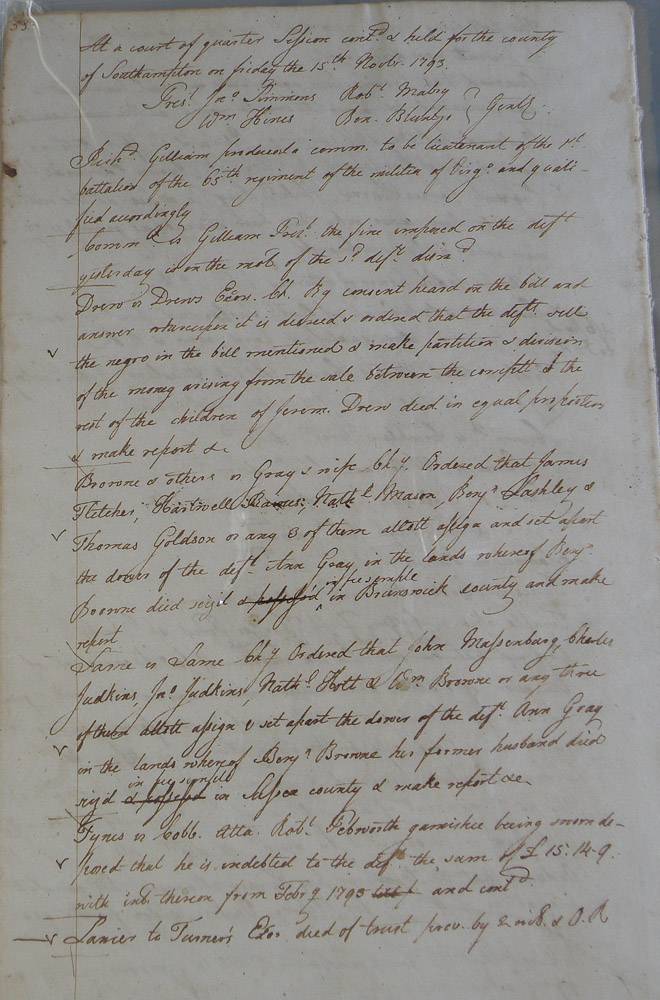 At a court of quarter Session cont.d & held for the county
of Southampton on friday the 15th Novbr. 1793.
Prest. Jno. Simmons Robt. Mabry
Wm Hines Ben. Blunt Gent.
Richd. Gilliam produced a comm. to be lieutenant of the 1st
battalion of the 65th regiment of the militia of Virga. and quali-
fied accordingly
Commth vs Gilliam Prest. the fine imposed on the deft.
yesterday is on the mot. of the sd. deft. dismd.
Drew vs Drews Exors. Ch. By consent heard on the bill and
answer whereupon it is decreed & ordered that the defts. sell
the negro in the bill mentioned & make partition & division
of the money arising from the sale between the complt. & the
rest of the children of Jerem. Drew died in equal proportion
& make report &c
Browne & others vs Gray & wife Chy. Ordered that James
Fletcher, Hartwell Nathl. Mason, Benja. Lashley &
Thomas Goldson or any 3 of them allott assign and set apart
the dower of the deft. Ann Gray, in the lands whereof Benja.
in fee simple
Browne died seizd & possessd in Brunswick county and make
report
Same vs Same Chy Ordered that John Massenburg, Charles
Judkins, Jno. Judkins, Nathl. Holt & Wm. Browne or any three
of them allott assign & set apart the dower of the deft. Ann Gray
in the lands whereof Benja. Browne her former husband died
in fee simple
siezd & possessd in Sussex county & make report &c.
Tynes vs Cobb. Atta. Robt. Tebworth garnishee being sworn de-
posed that he is indebted to the deft. the sum of £ 15: 14-9.
with int. thereon from Febry 1793 and contd.
Lanier to Turner's Exor deed of trust prov. by 2 wits. & O. R